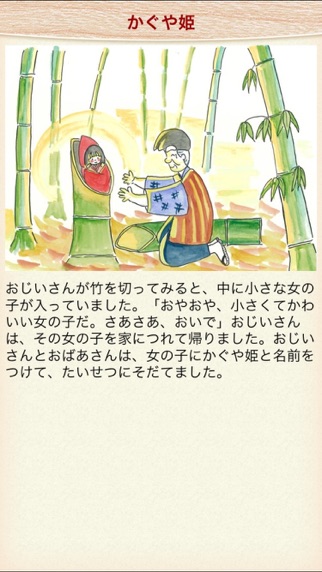 かぐや姫
おじいさんが竹を切ってみると、中に小さな女の
子が入っていました。「おやおや、小さくてかわ
いい女の子だ。さあさあ、おいで」おじいさん
は、その女の子を家につれて帰りました。おじい
さんとおばあさんは、女の子にかぐや姫と名前を
つけて、たいせつにそだてました。